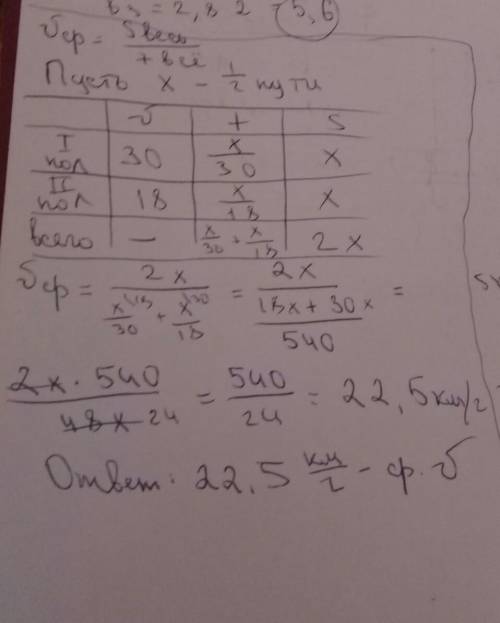 = 2,8 2 = 5,6
υср = Sвесь / tвсё
Пусть x - 1/2 пути
υ t S
I пол 30 x/30 x
II пол 18 x/18 x
всего — x/30 + x/18 2x
υср = 2x / (x^18/30 + x^30/18) = 2x / ((18x + 30x)/540) =
2x · 540 / 48x 24 = 540/24 = 22,5 км/ч
Ответ: 22,5 км/ч - ср. υ